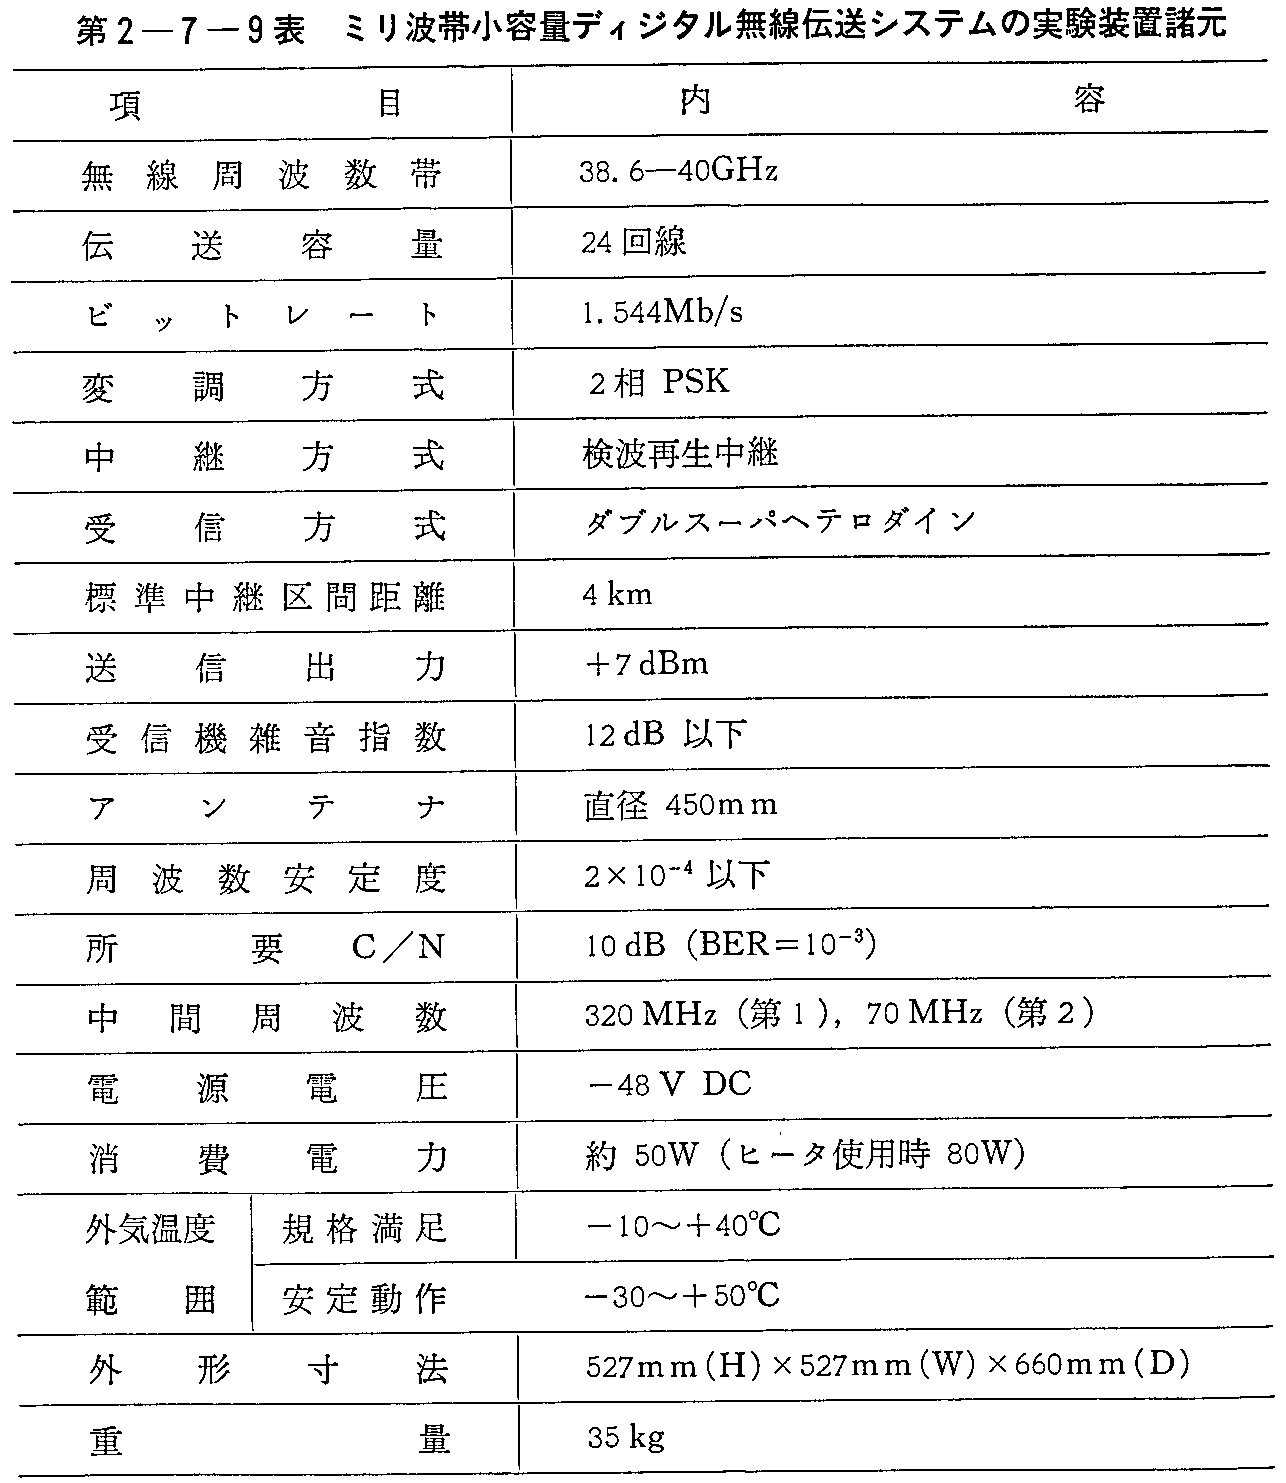 第2―7―9表　ミリ波帯小容量ディジタル無線伝送システムの実験装置諸元
項目　内容
無線周波数帯　38.6―40GHz
伝送容量　24回線
ビットレート　1.544Mb/s
変調方式　2相 PSK
中継方式　検波再生中継
受信方式　ダブルスーパヘテロダイン
標準中継区間距離　4km
送信出力　+7dBm
受信機雑音指数　12dB 以下
アンテナ　直径 450mm
周波数安定度　2×10⁻⁴ 以下
所要C／N　10dB (BER=10⁻³)
中間周波数　320MHz (第1), 70MHz (第2)
電源電圧　−48V DC
消費電力　約 50W (ヒータ使用時 80W)
外気温度　規格満足　−10〜+40℃
範囲　安定動作　−30〜+50℃
外形寸法　527mm(H)×527mm(W)×660mm(D)
重量　35kg